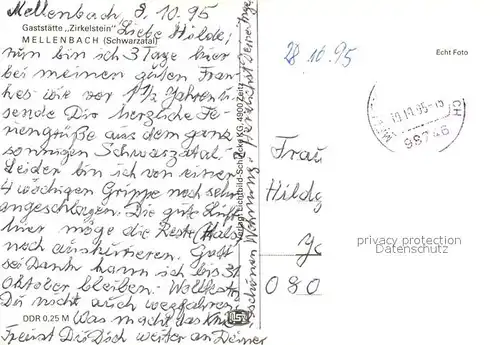 Mellenbach 8.10.95
Gaststätte „Zirkelstein"
MELLENBACH (Schwarzatal)
Liebe Hilde,
nun bin ich 3 Tage hier
bei meinen guten Fran-
kes wie vor 1 1/2 Jahren u.
sende Dir herzliche Fe-
riengrüße aus dem ganz
sonnigen Schwarzatal.
Leider bin ich von einer
4 wöchigen Grippe noch sehr
angeschlagen. Die gute Luft
hier möge die Reste (Hals)
noch auskurieren. Gott
sei Dank kann ich bis 31
Oktober bleiben. Wolltest
Du nicht auch wegfahren.
DDR 0,25 M Was macht das Knie
Freust Du Dich weiter an Deiner
schönen Wohnung.
Verlag Lichtbild-Schincke KG, 4900 Zeitz
28 10.95
Echt Foto
98746
Frau
Hildeg
privacy protection
Datenschutz
080